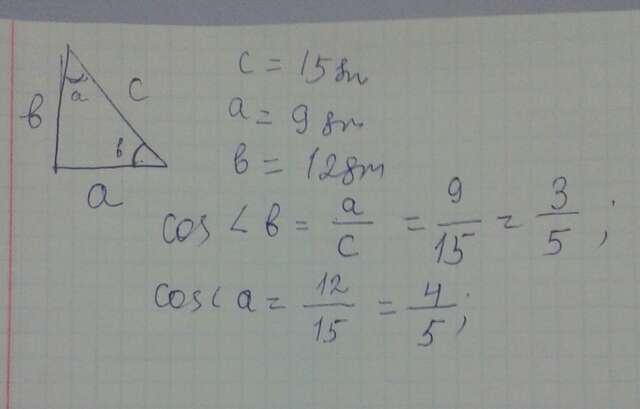 в
a
c
в
a
c = 15дм
a = 9дм
в = 12дм
cos < в = a/c = 9/15 = 3/5 ;
cos < a = 12/15 = 4/5 ;